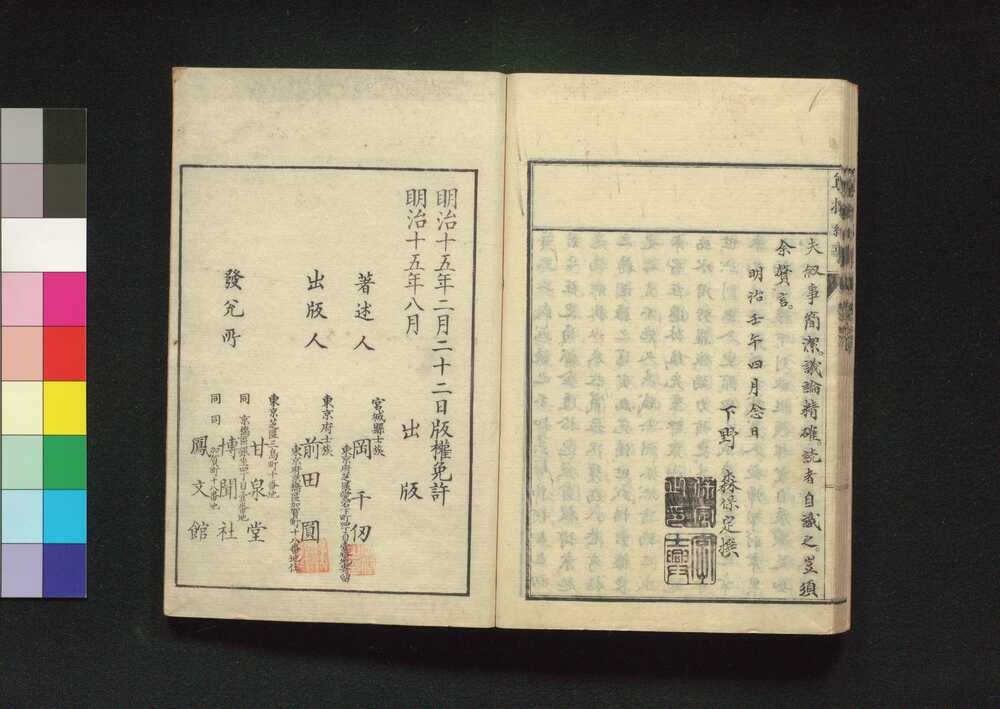 夫叙事簡潔。議論精確。読者自識之。豈須
余贅言。
明治壬午四月念日
下野 森保定撰
明治十五年二月二十二日版權免許
明治十五年八月 出版
著述人
宮城縣士族
岡千仭
出版人
東京府士族
前田圓
發兌所
東京芝區三島町十番地
甘泉堂
同
博聞社
同 同
鳳文館